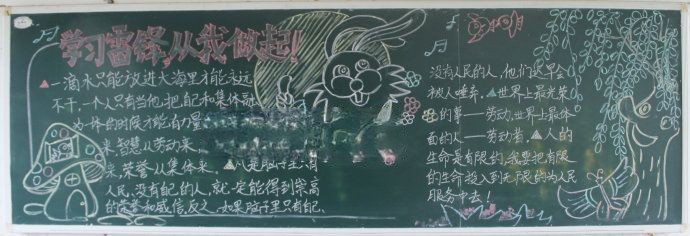 学习雷锋,从我做起!
▲一滴水只能放进大海里才能永远
不干,一个人只有当他把自己和集体融
为一体的时候才能有力量
来,智慧从劳动来,
来,荣誉从集体来。▲凡是脑子里只有
人民,没有自己的人,就一定能得到崇高
的荣誉和威信。反之,如果脑子里只有自己,
没有人民的人,他们迟早会
被人唾弃。▲世界上最光荣
的事——劳动,世界上最体
面的人——劳动者。▲人的
生命是有限的,我要把有限
的生命投入到无限的为人民
服务中去!